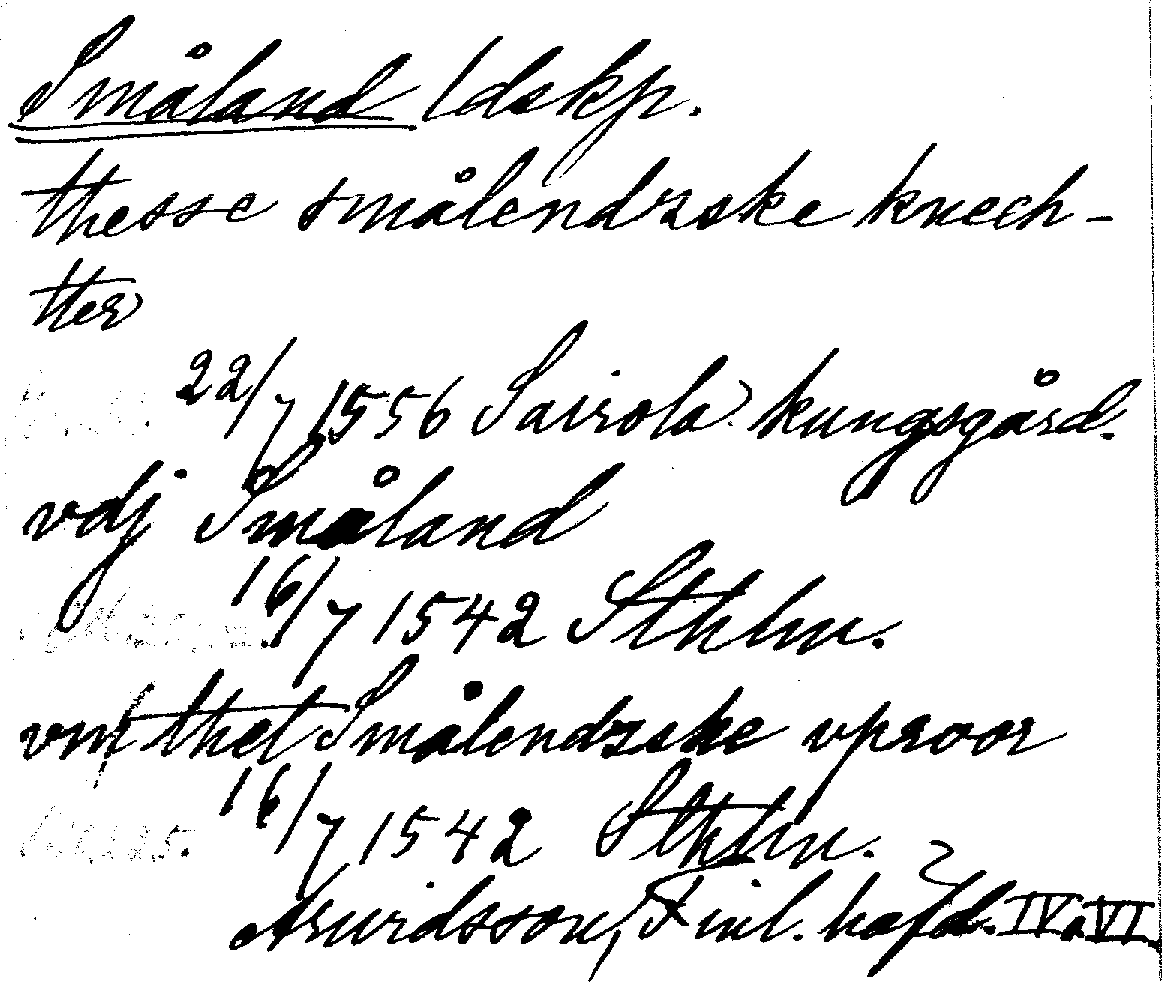 Småland ldskp.
thesse smålendzske knech-
tter
22/7 1556 Sairola kungsgård.
vdj Småland
16/7 1542 Sthlm.
vm thet Smålendzske vproor
16/7 1542 Sthlm.
Arwidsson, Finl. häfd. IV o. VI.